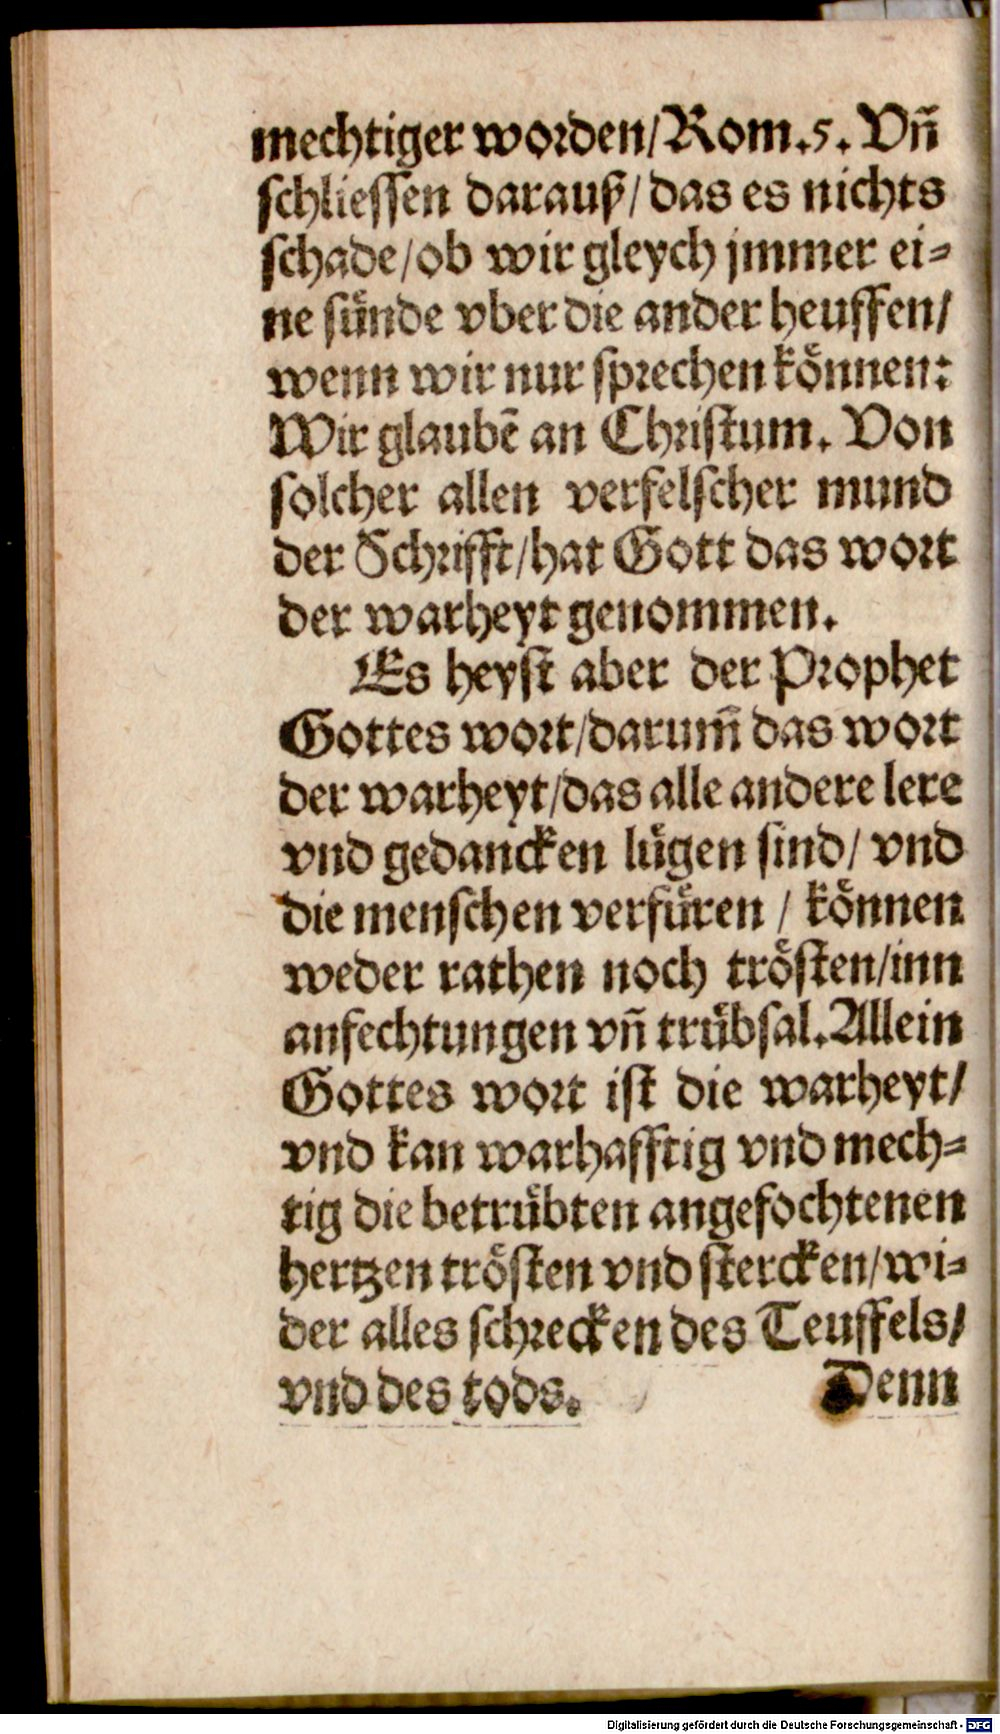 mechtiger worden/Rom.5. Vn̄
schliessen darauß/ das es nichts
schade/ob wir gleych jmmer ei⸗
ne suͤnde vber die ander heuffen/
wenn wir nur sprechen koͤnnen:
Wir glaubē an Christum. Von
solcher allen verfelscher mund
der Schrifft/hat Gott das wort
der warheyt genommen.
Es heyst aber der Prophet
Gottes wort/darum̄ das wort
der warheyt/das alle andere lere
vnd gedancken luͤgen sind/ vnd
die menschen verfuͤren / koͤnnen
weder rathen noch troͤsten/inn
anfechtungen vn̄ truͤbsal. Allein
Gottes wort ist die warheyt/
vnd kan warhafftig vnd mech⸗
tig die betruͤbten angefochtenen
hertzen troͤsten vnd stercken/wi⸗
der alles schrecken des Teuffels/
vnd des tods. Denn
Digitalisierung gefördert durch die Deutsche Forschungsgemeinschaft - DFG